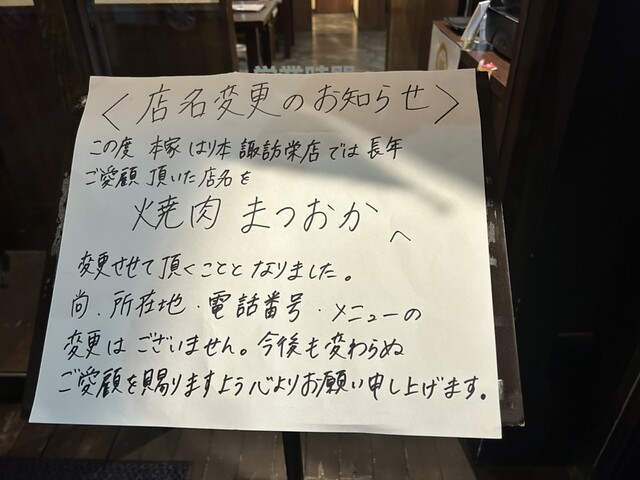 〈店名変更のお知らせ〉
この度 本家 はり本 諏訪栄店では長年
ご愛顧 頂いた店名を
焼肉 まつおか へ
変更させて頂くこととなりました。
尚、所在地・電話番号・メニューの
変更はございません。今後も変わらぬ
ご愛顧を賜りますよう心よりお願い申し上げます。